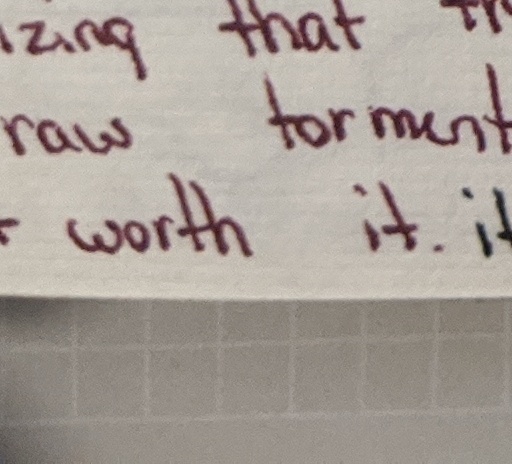 izing that
raw torment
worth it. it